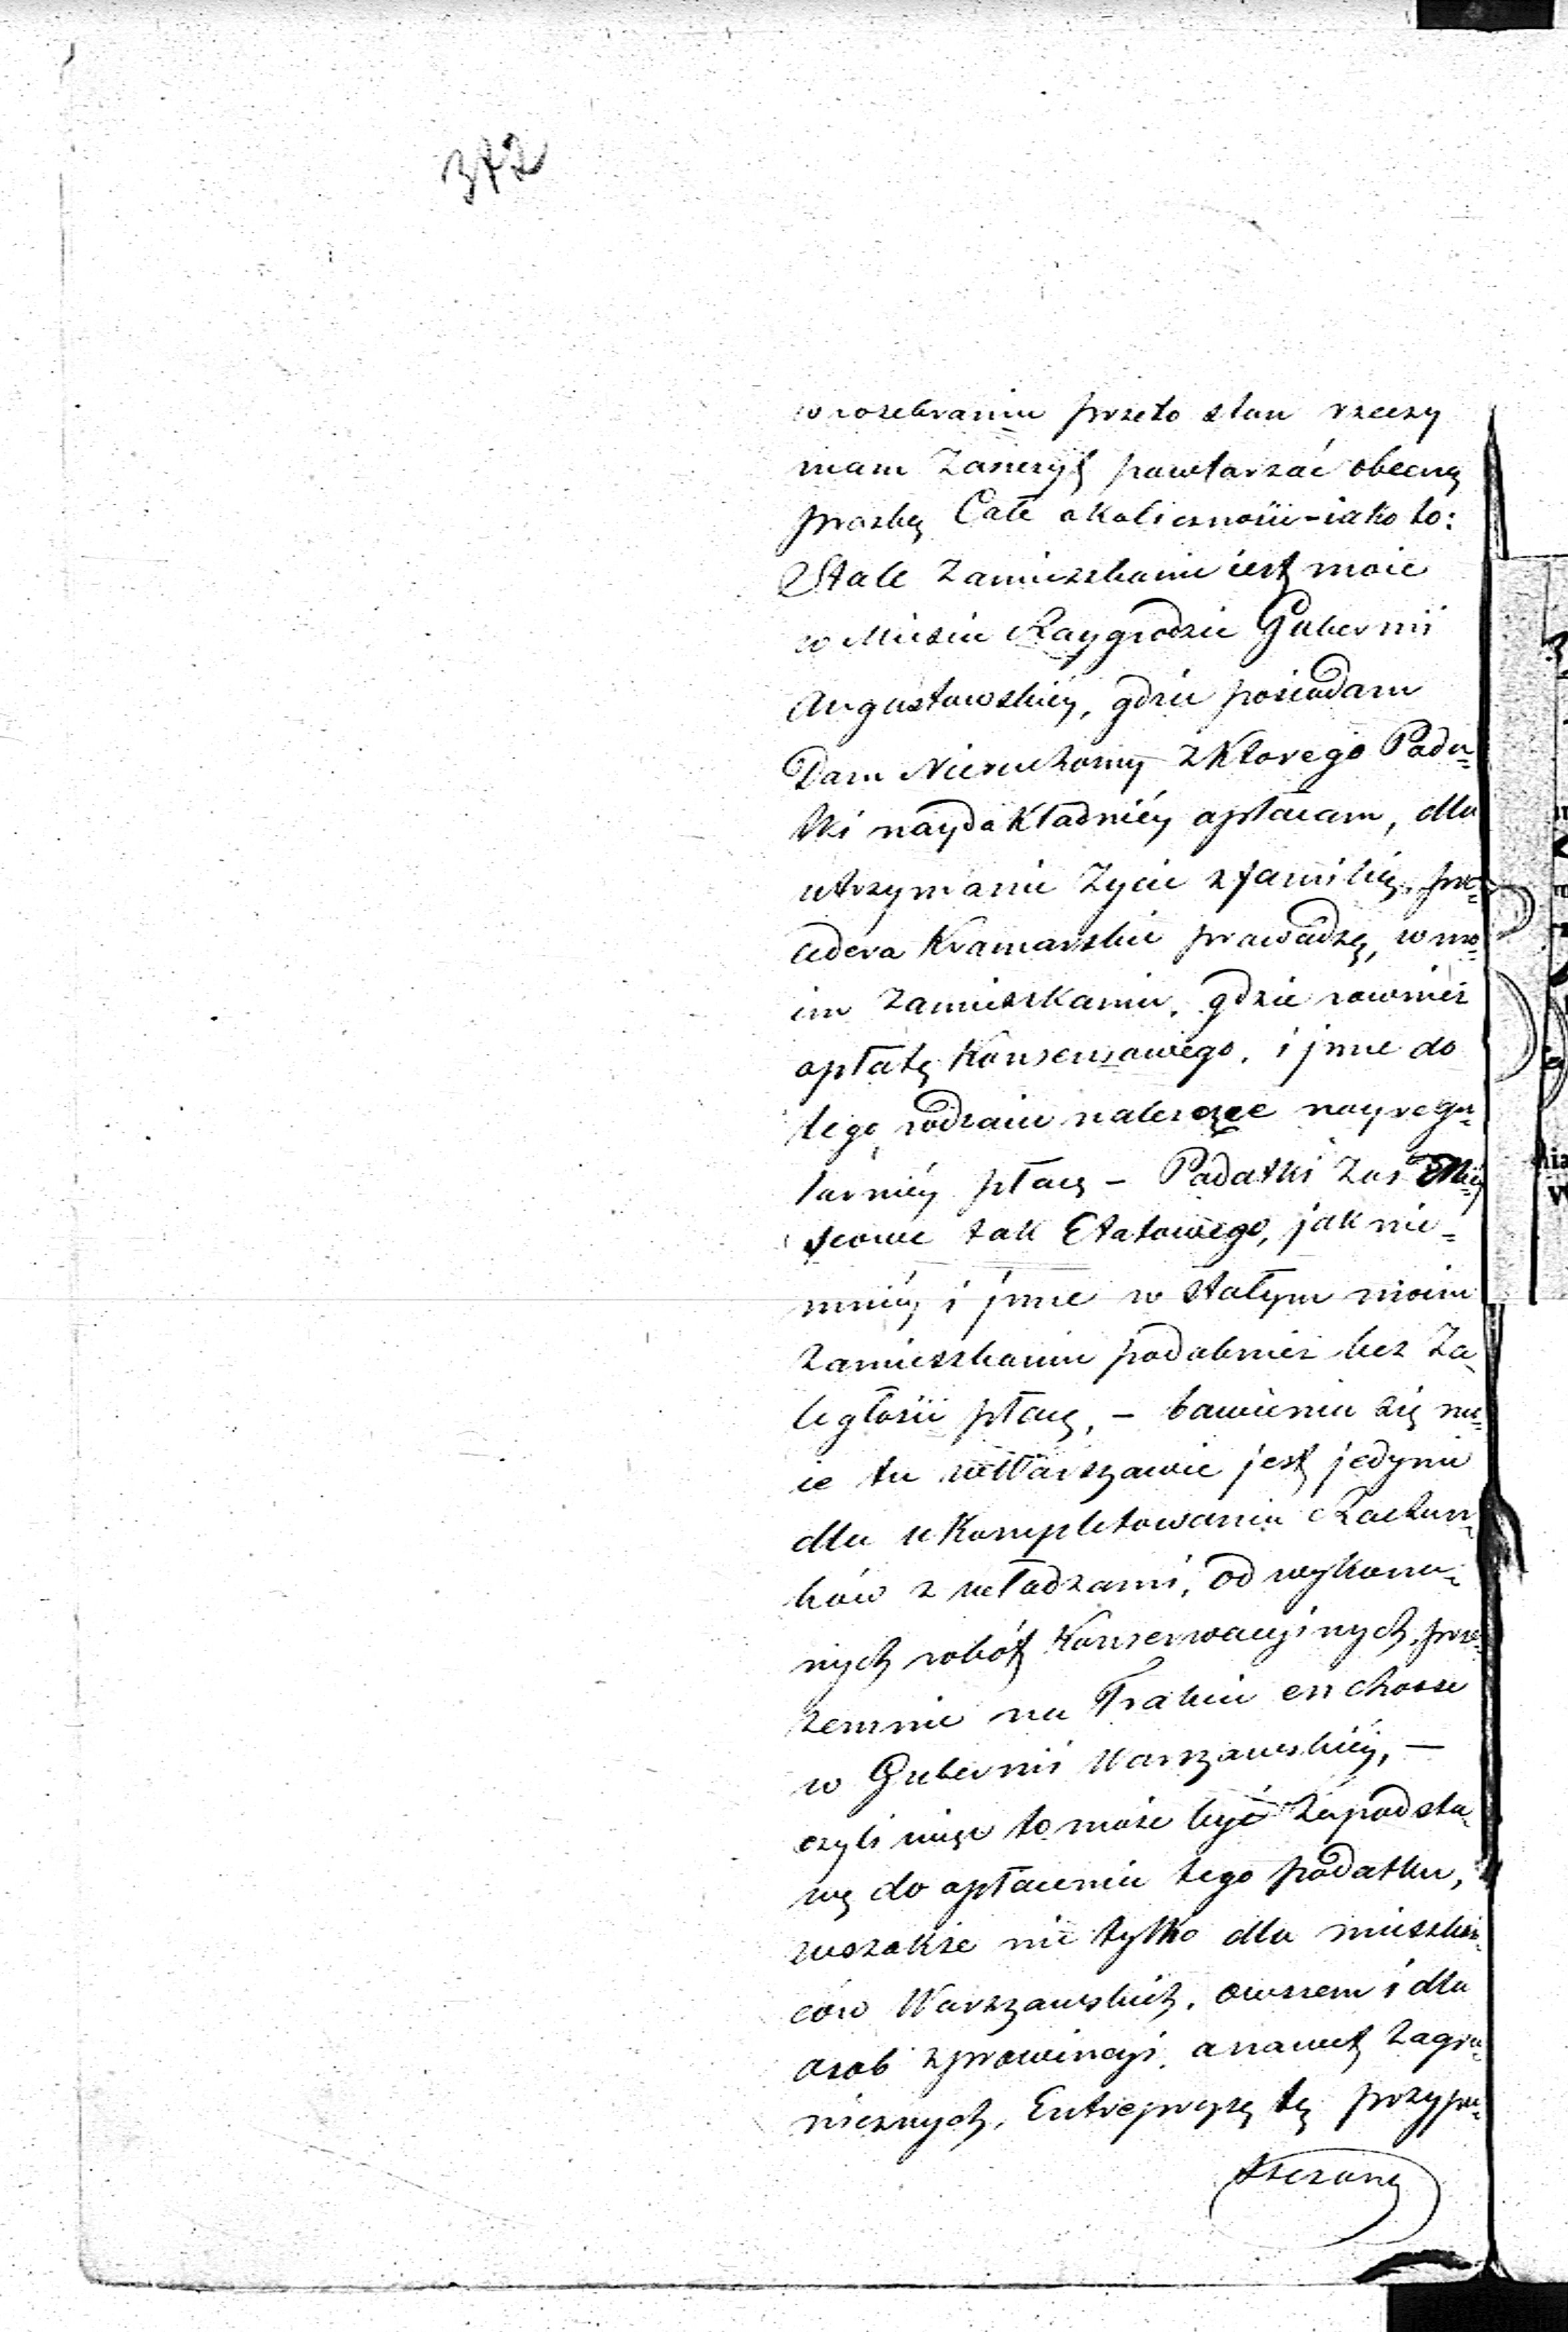 342
w rozebraniu przeto stan rzeczy
mam Zaszczyt powtarzać obecną
prozbę Całe okoliczności - iako to:
Stałe Zamieszkanie iest moie
w Mieście Raygrodzie Gubernii
Augustowskiéy, gdzie posiadam
Dom Nieruchomy z Ktorego Poda=
tki naydokładniéy opłacam, dla
utrzymania Zycie z familią, pro=
cedera Kramarskie prowadzę, w mo=
im Zamieszkaniu, gdzie rownież
opłatę Konsensowego, i jnne do
tego rodzaiu należące nayregu=
larniéy płacę - Podatki Zaś Miey
scowe tak Etatowego, jak nie=
mniéy i jnne w stałym moim
Zamieszkaniu podobnież bez Za=
ległości płacę, - bawieniu się mo=
ie tu w Warszawie jest jedynie
dla uKompletowania Rachun=
ków z władzami, od wykona=
nych robót Konserwacyinych, prze=
zemnie na Trakcie en chosse
w Gubernii Warszawskiéy, -
czyli więc to może być Zapodsta=
wę do opłacenia tego podatku,
wszakże nie tylko dla mieszkań=
ców Warszawskich, owszem i dla
osob z prowincyi, a nawet Zagra=
nicznych, Entrepryzę tę przypu=
szczoną